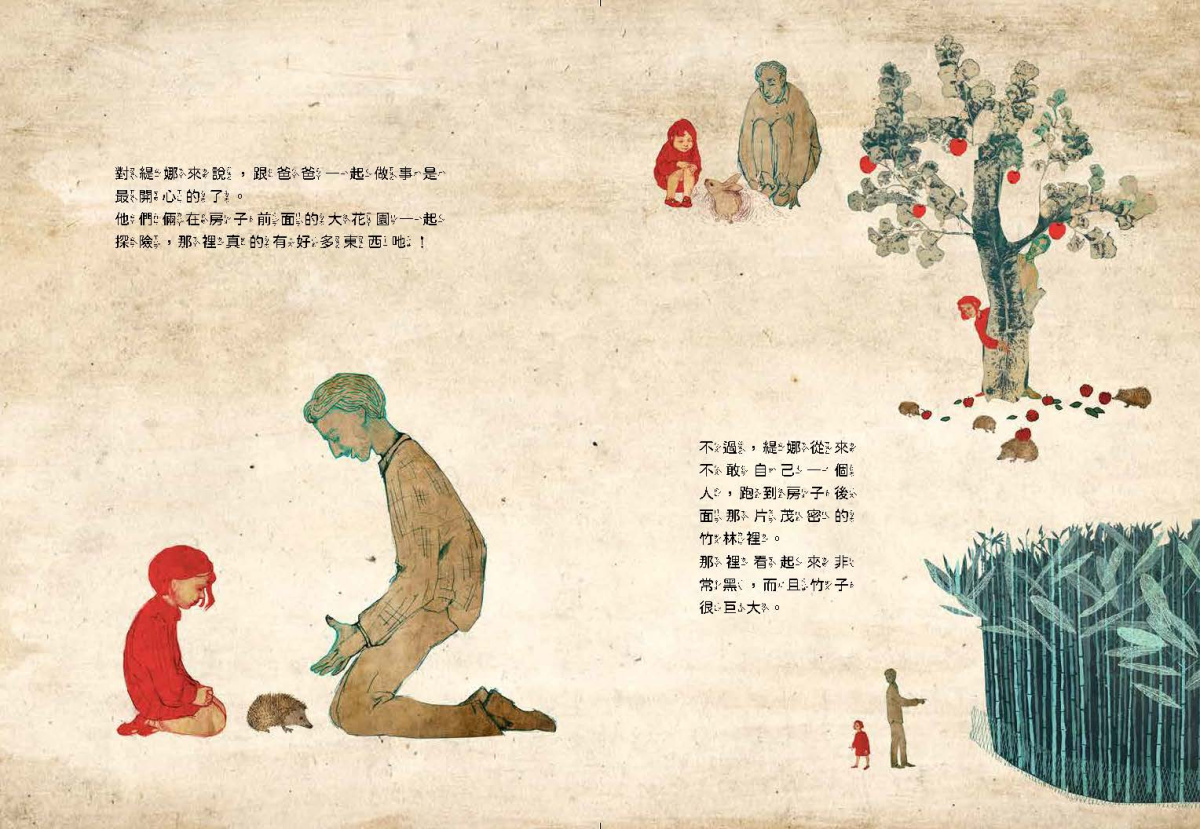 對緹娜來說，跟爸爸一起做事是
最開心的了。
他們倆在房子前面的大花園一起
探險，那裡真的有好多東西吔！
不過，緹娜從來
不敢自己一個
人，跑到房子後
面那片茂密的
竹林裡。
那裡看起來非
常黑，而且竹子
很巨大。